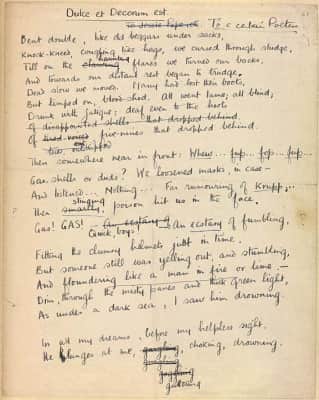 Dulce et Decorum est.
To Jessie Pope etc. To a certain Poetess.
Bent double, like old beggars under sacks,
Knock-kneed, coughing like hags, we cursed through sludge,
Till on the haunting flares we turned our backs,
And towards our distant rest began to trudge.
Dead slow we moved. Many had lost their boots,
But limped on, blood-shod. All went lame; all blind;
Drunk with fatigue; deaf even to the hoots
Of disappointed shells that dropped behind.
Of five-nines that dropped behind.
Then somewhere near in front: Whew... fup... fop... fup...
Gas shells or duds? We loosened masks, in case —
And listened... Nothing... Far rumouring of Krupp;...
stinging
Then smarting poison hit us in the face.
Gas! GAS! — An ecstasy of An ecstasy of fumbling,
Quick, boys!
Fitting the clumsy helmets just in time.
But someone still was yelling out, and stumbling,
And floundering like a man in fire or lime. —
Dim, through the misty panes and thick green light,
As under a dark sea, I saw him drowning.
In all my dreams, before my helpless sight,
He plunges at me, gargling, choking, drowning.
guttering